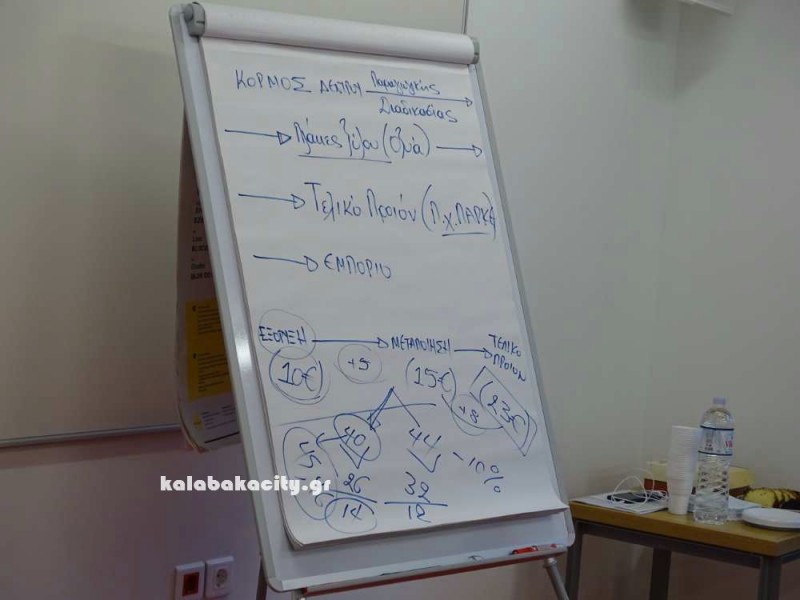 ΚΟΡΜΟΣ ΔΕΝΤΡΟΥ Παραγωγικής
Διαδικασίας
Πλάκες ξύλου (οξυά)
Τελικό Προιόν (Π.χ. ΠΑΡΚΕ
ΕΜΠΟΡΙΟ
ΕΞΟΡΥΞΗ ΜΕΤΑΠΟΙΗΣΗ ΤΕΛΙΚΟ
ΠΡΟΙΟΝ
10€ +5 15€ +8 23€
40 44 -10%
26 32
14 12
kalabakacity.gr